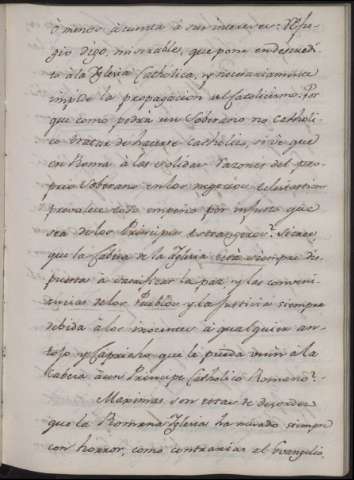 ó menos ó cuenta á sus intereses? Refu-
gio digo, miserable, que pone en descredi-
to á la Yglesia Catholica, y necesariamente
impide la propagacion del Catolicismo. Por
que como podrá un Soberano no Catholi-
co tratar de hacerse Catholico, si ve que
en Roma á las solidas razones del pro-
prio Soberano en los negocios Eclesiasticos
prevalece todo empeño por injusto que
sea de los Principes extrangeros?
que la Cabeza de la Yglesia está siempre dis-
puesta á sacrificar la paz y las conveni-
encias de los Pueblos y la Justicia siempre
debida á los inocentes á qualquier an-
tojo y Capricho que le pueda venir á la
Cabeza á un Principe Catholico Romano?
Maximas son estas de desorden
que la Romana Yglesia ha mirado siempre
con horror, como contrarias al Evangelio